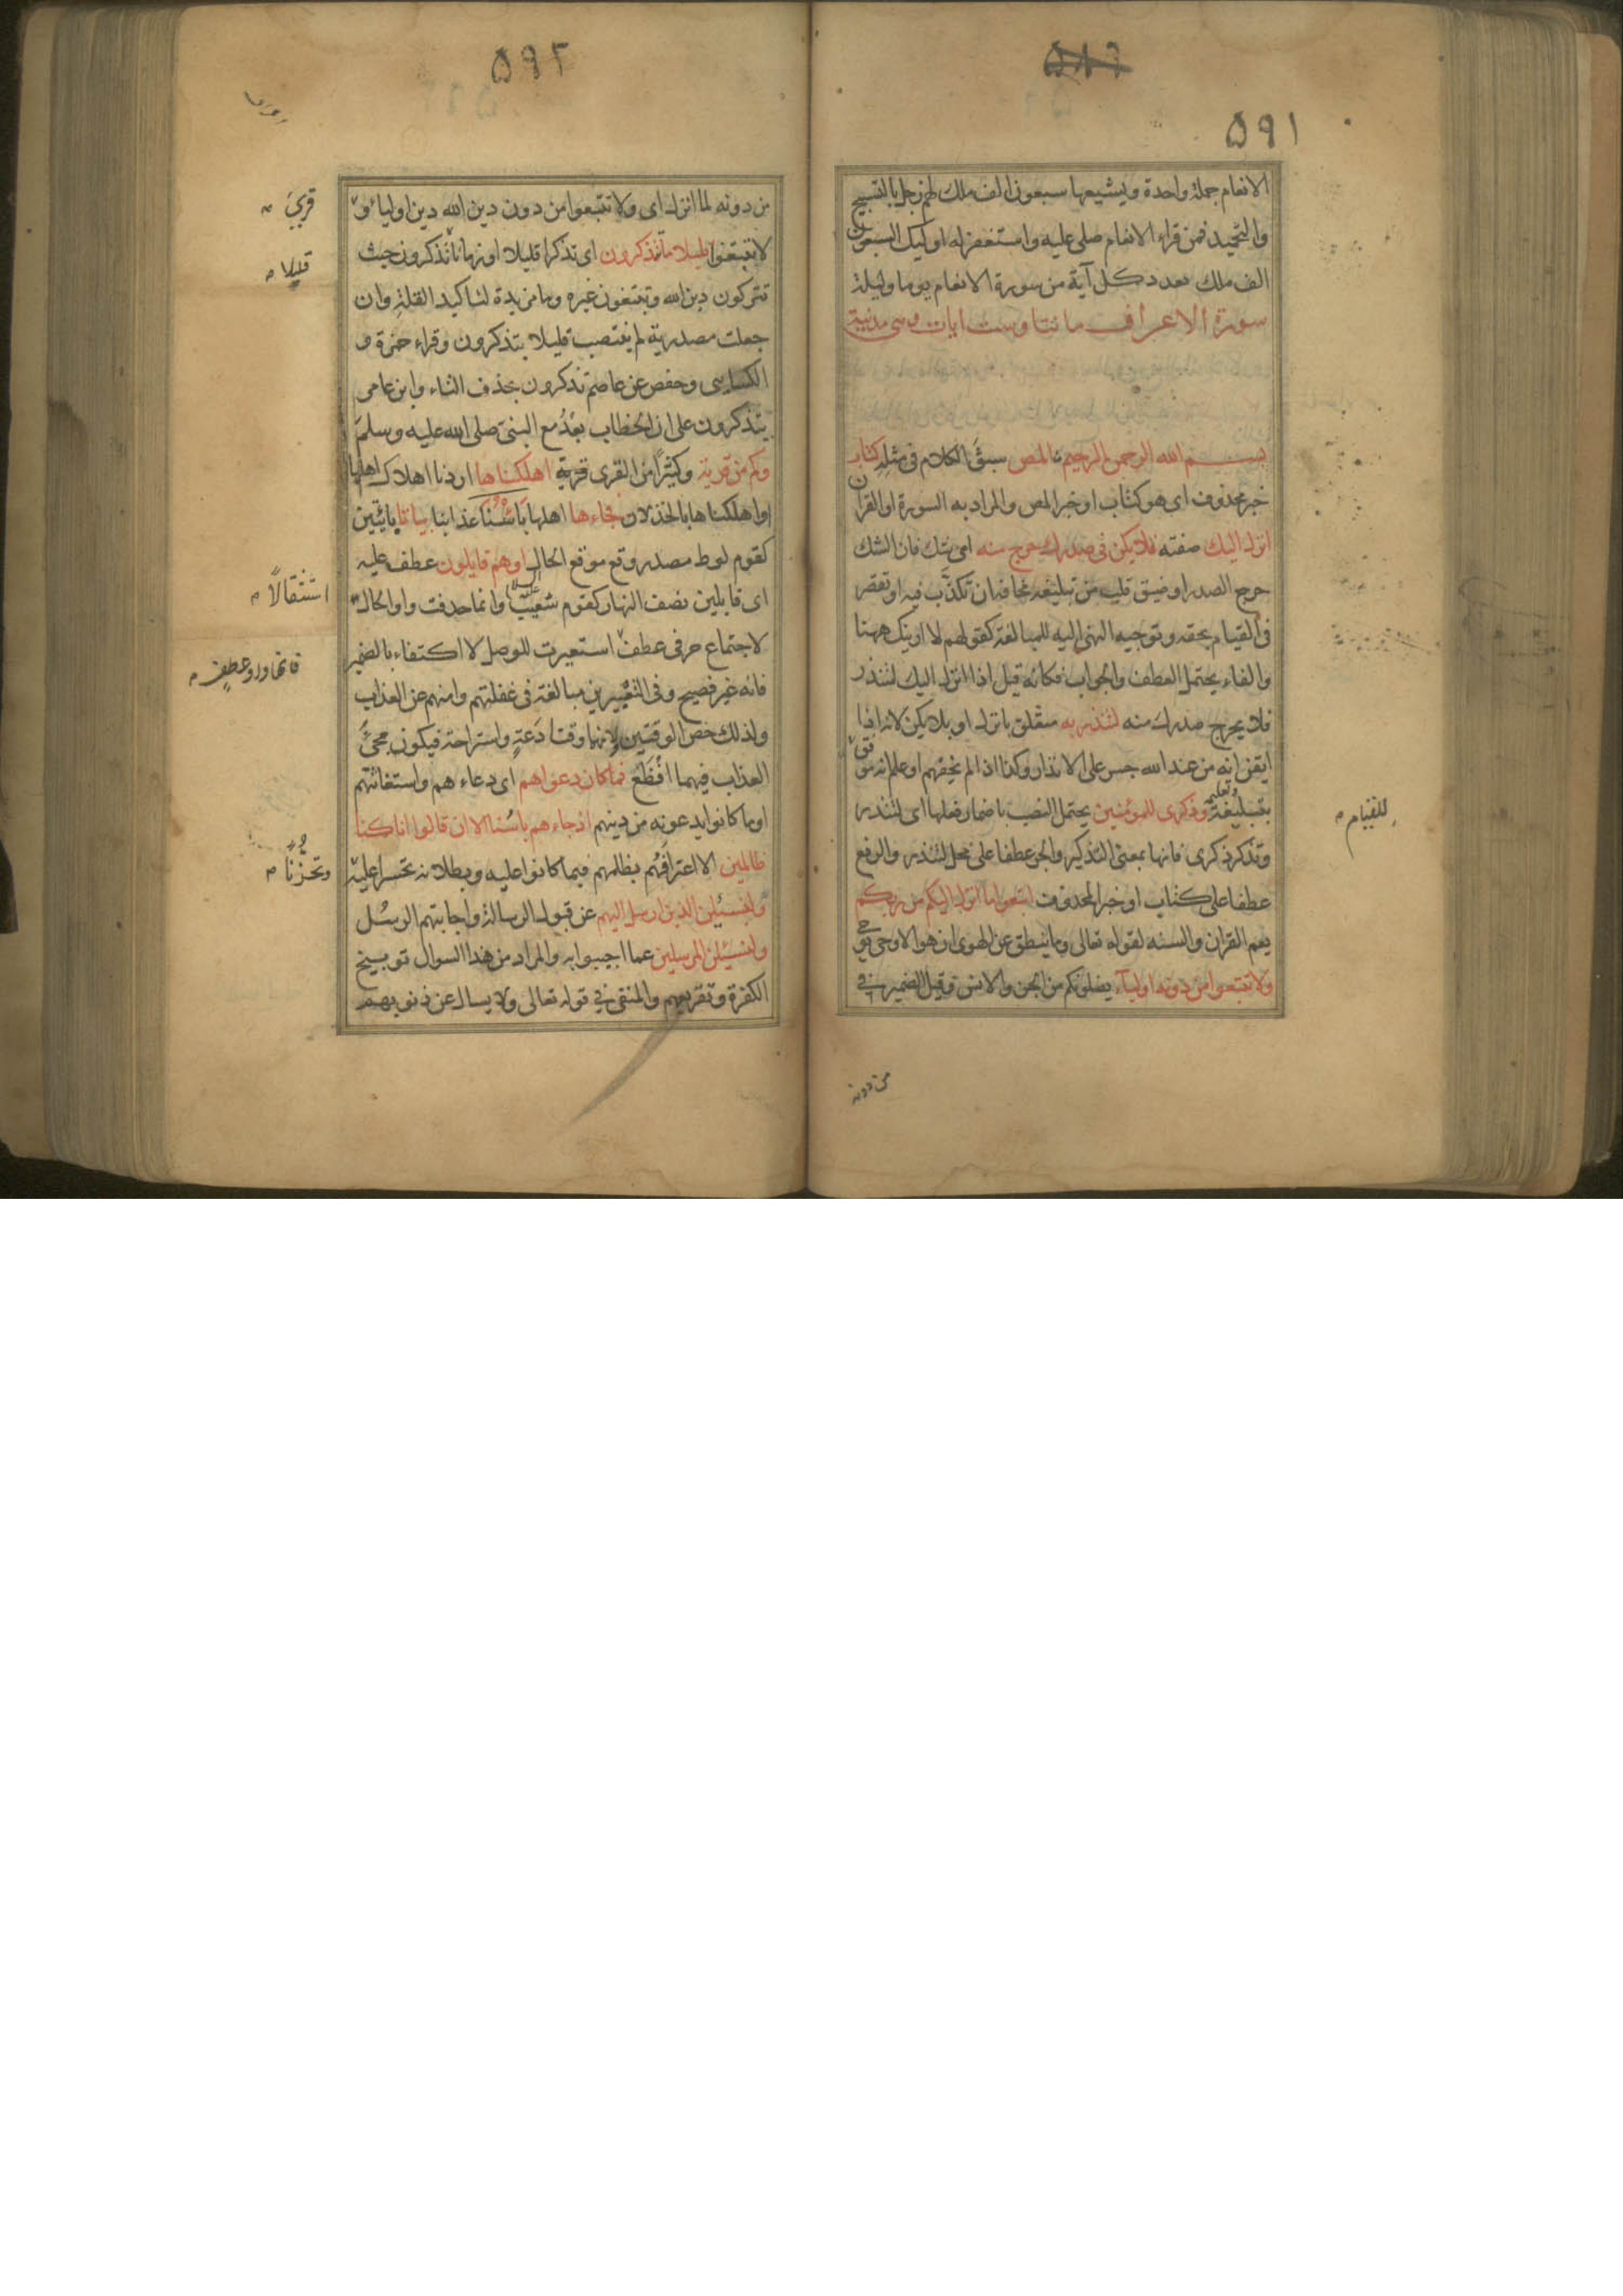 ٥٨٩
٥٩١
الانعام جملة واحدة ويشيعها سبعون الف ملك لهم زجل بالتسبيح
والتحميد فمن قراء الانعام صلى عليه واستغفر له اوليك السبعون
الف ملك بعدد كل آية من سورة الانعام يوما وليلة
سورة الاعراف مائتا وست ايات وهى مدنية
بسم الله الرحمن الرحيم المص سبق الكلام فى مثله كتاب
خبر محذوف اى هو كتاب او خبر المص والمراد به السورة او القران
انزل اليك صفته فلا يكن فى صدرك حرج منه اى شك فان الشك
حرج الصدر او ضيق قلب من تبليغه مخافة ان تكذب فيه او تقصر
فى القيام بحقه وتوجيه النهى اليه للمبالغة كقولهم لا ارينك ههنا
والفاء يحتمل العطف والجواب فكانه قيل اذا انزل اليك لتنذر
فلا يحرج صدرك منه لتنذر به متعلق بانزل او بلا يكن لانه اذا
ايقن انه من عند الله جسر على الانذار وكذا اذا لم يخفهم او علم انه موفق
بتبليغه وتعليمه وذكرى للمؤمنين يحتمل النصب باضمار فعلها اى لتنذر
وتذكر ذكرى فانها بمعنى التذكير والجر عطفا على محل لتنذر والرفع
عطفا على كتاب او خبر المحذوف اتبعوا ما انزل اليكم من ربكم
يعم القران والسنه لقوله تعالى وما ينطق عن الهوى ان هو الا وحى يوحى
ولا تتبعوا من دونه اولياء يضلونكم من الجن والانس وقيل الضمير فى
للقيام
من دونه
٥٩٢
من دونه لما انزل اى ولا تتبعوا من دون دين الله دين اولياء و
لا تبتغوا قليلا ما تذكرون اى تذكرا قليلا او زمانا تذكرون حيث
تتركون دين الله وتبتغون غيره وما مزيدة لتاكيد القلة وان
جعلت مصدرية لم ينتصب قليلا بتذكرون وقراء حمزة و
الكسايى وحفص عن عاصم تذكرون بحذف التاء وابن عامر
يتذكرون على ان الخطاب بعد مع النبى صلى الله عليه وسلم
وكم من قرية وكثيرا من القرى قرية اهلكناها اردنا اهلاك اهلها
او اهلكناها بالخذلان فجاءها اهلها باسنا عذابنا بياتا بايتين
كقوم لوط مصدر وقع موقع الحال او هم قايلون عطف عليه
اى قايلين نصف النهار كقوم شعيب وانما حذفت واو الحال
لاجتماع حرفى عطف استعيرت للوصل لا اكتفاء بالضمير
فانه غير فصيح وفى التعبيرين مبالغة فى غفلتهم وامنهم عن العذاب
ولذلك خص الوقتين لانهما وقتا دعة واستراحة فيكون مجئ
العذاب فيهما افظع فما كان دعواهم اى دعاءهم واستغاثتهم
او ما كانوا يدعونه من دينهم اذ جاءهم باسنا الا ان قالوا انا كنا
ظالمين الا اعترافهم بظلمهم فيما كانوا عليه وبطلانه تحسرا عليه
فلنسئلن الذين ارسل اليهم عن قبول الرسالة واجابتهم الرسل
ولنسئلن المرسلين عما اجيبوا به والمراد من هذا السوال توبيخ
الكفرة وتقريعهم والمنفى فى قوله تعالى ولا يسال عن ذنوبهم
قرئ
قليلا
استثقالا
فانها واو عطف
وتحزنا